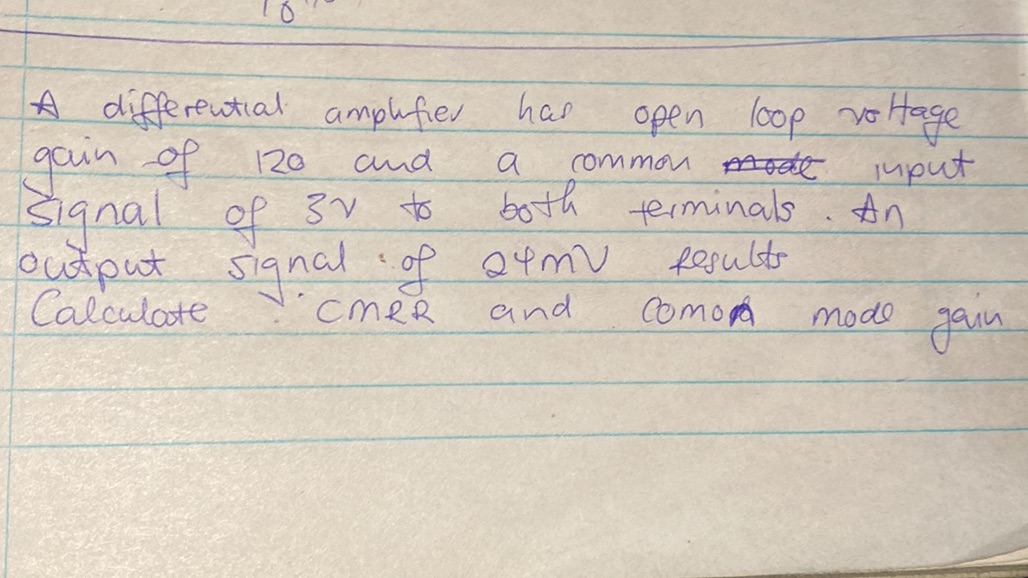 A differential amplifier has open loop voltage
gain of 120 and a common input
signal of 3V to both terminals. An
output signal of 24mV results
Calculate CMRR and Comon mode gain